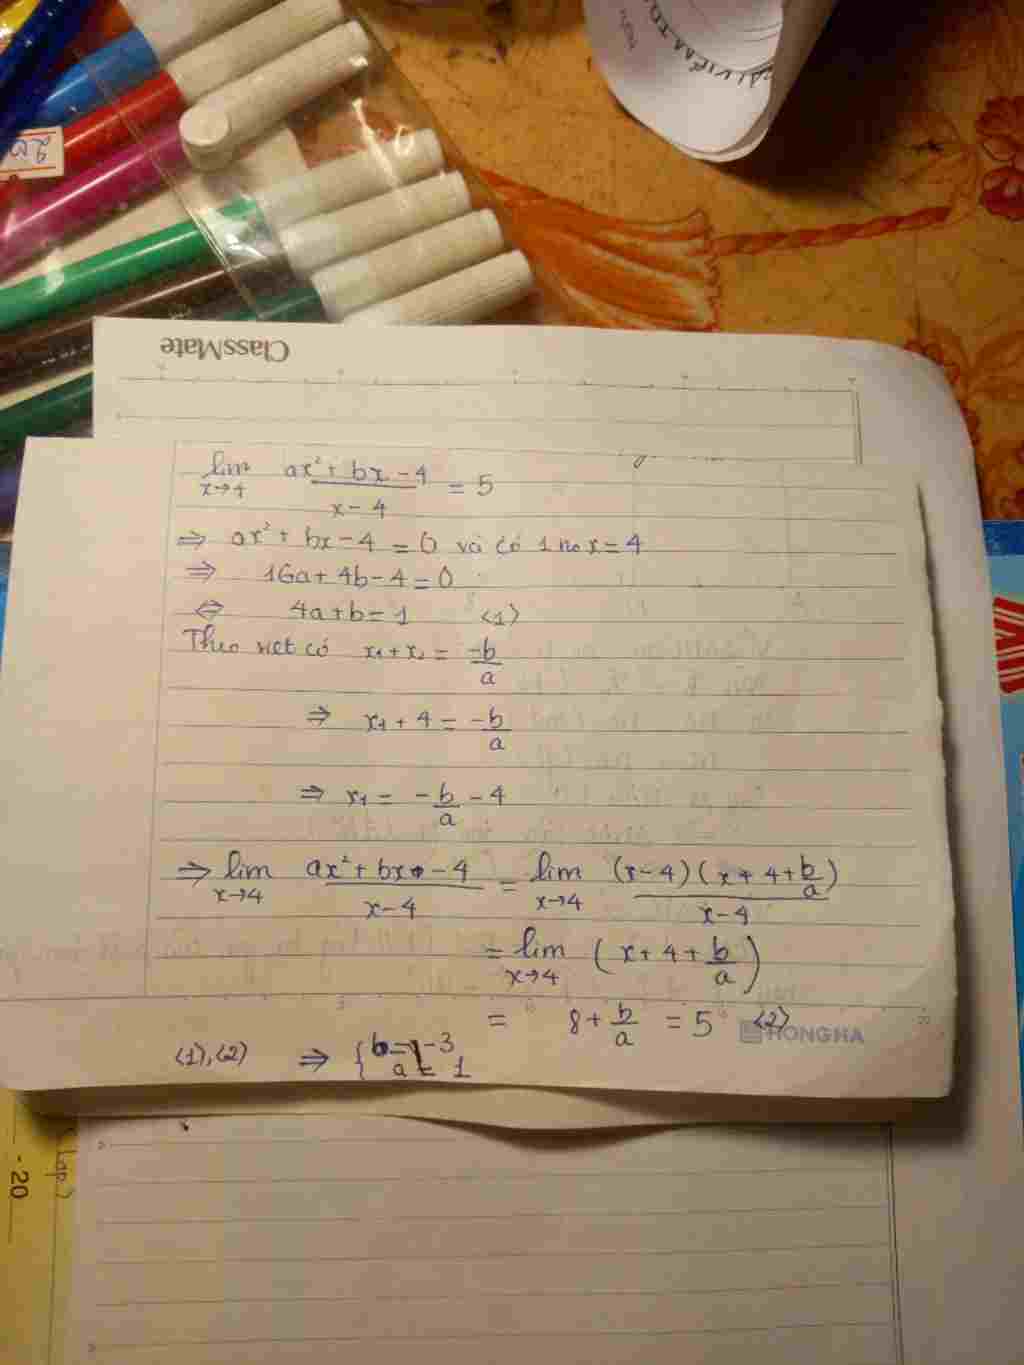 ClassMate
lim ax² + bx - 4 / x - 4 = 5
x→4
⇒ ax² + bx - 4 = 0 và có 1 no x = 4
⇒ 16a + 4b - 4 = 0
⇔ 4a + b = 1 (1)
Theo viet có x₁ + x₂ = -b/a
⇒ x₁ + 4 = -b/a
⇒ x₁ = -b/a - 4
⇒ lim x→4 ax² + bx - 4 / x-4 = lim x→4 (x-4)(x+4+b/a) / x-4
= lim x→4 (x + 4 + b/a)
= 8 + b/a = 5 (2)
HONGHA
(1), (2) ⇒ { b = -3
a = 1
- 20